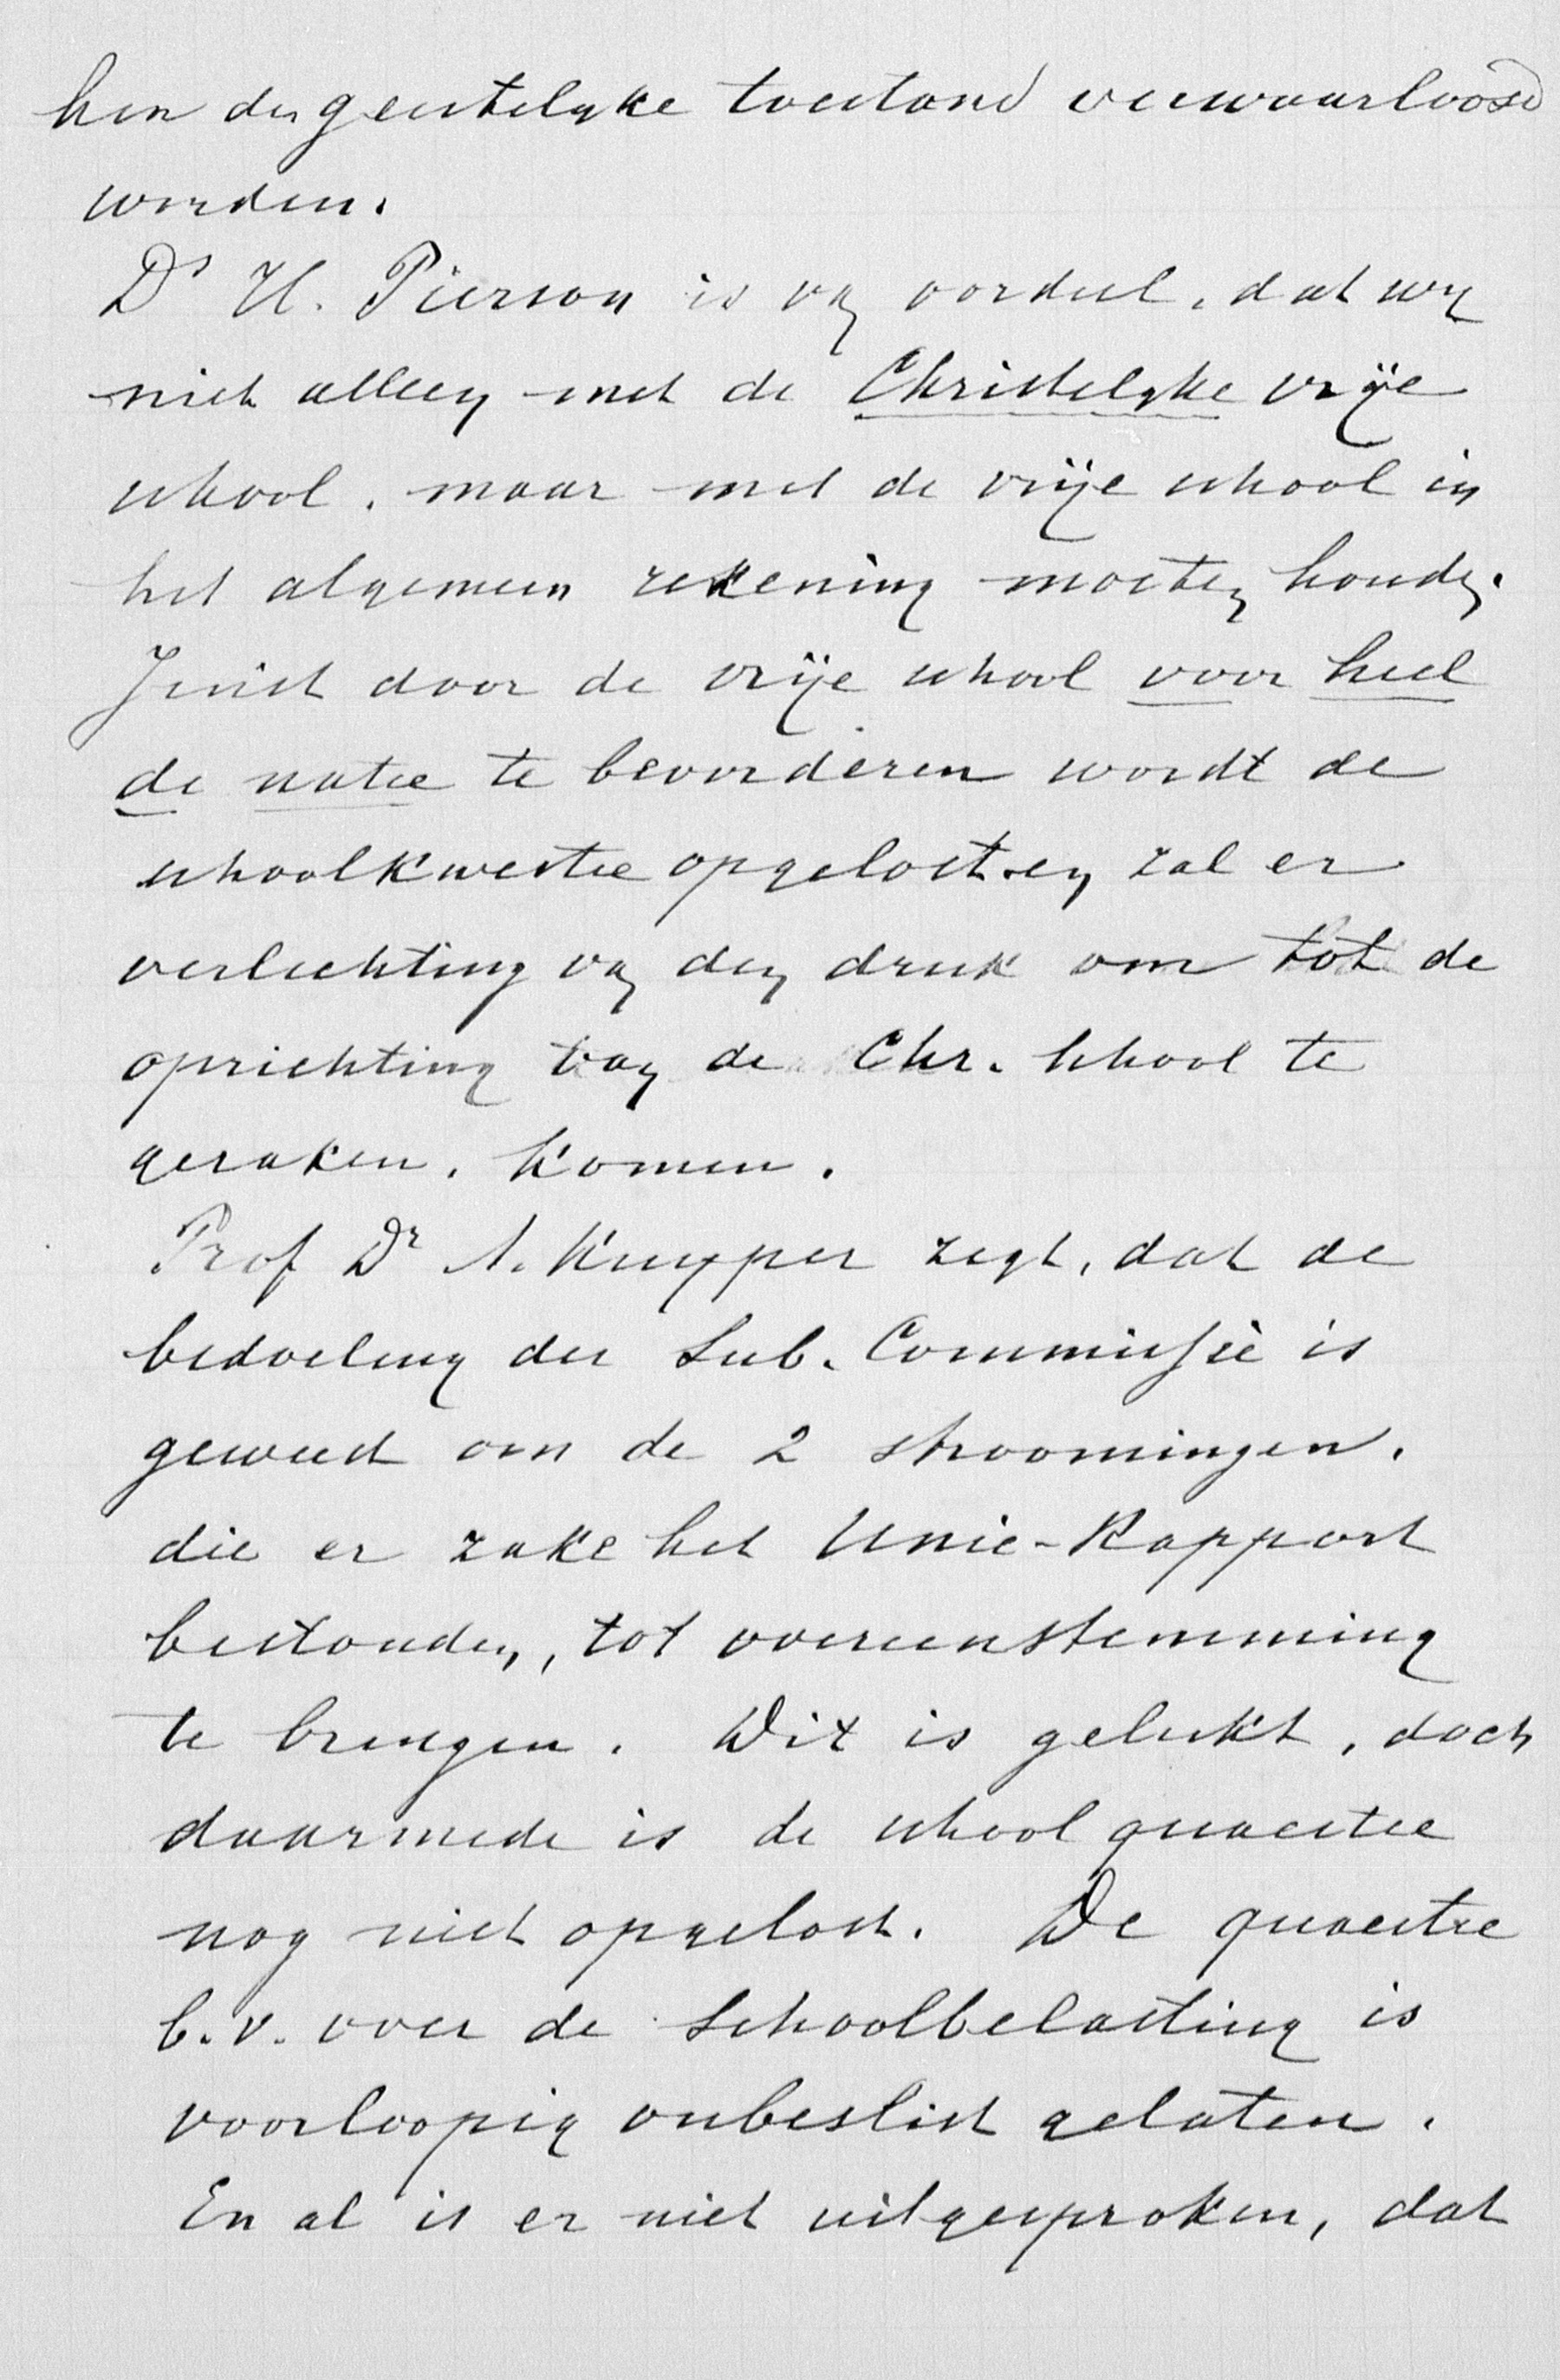 hen der geestelyke toestand verwaarloosd
worden.
Ds H. Pierson is van oordeel, dat wy
niet alleen met de Christelyke vrije
school, maar met de vrije school in
het algemeen rekening moeten houden.
Juist door de vrije school voor heel
de natie te bevorderen wordt de
schoolkwestie opgelost en zal er
verlichting van den druk om tot de
oprichting van de Chr. School te
geraken, komen.
Prof Dr A. Kuyper zegt, dat de
bedoeling der Sub. Commissie is
geweest om de 2 stroomingen,
die er zake het Unie-Rapport
bestonden, tot overeenstemming
te brengen. Dit is gelukt, doch
daarmede is de schoolquaestie
nog niet opgelost. De quaestie
b.v. over de Schoolbelasting is
voorloopig onbeslist gelaten.
En al is er niet uitgesproken, dat